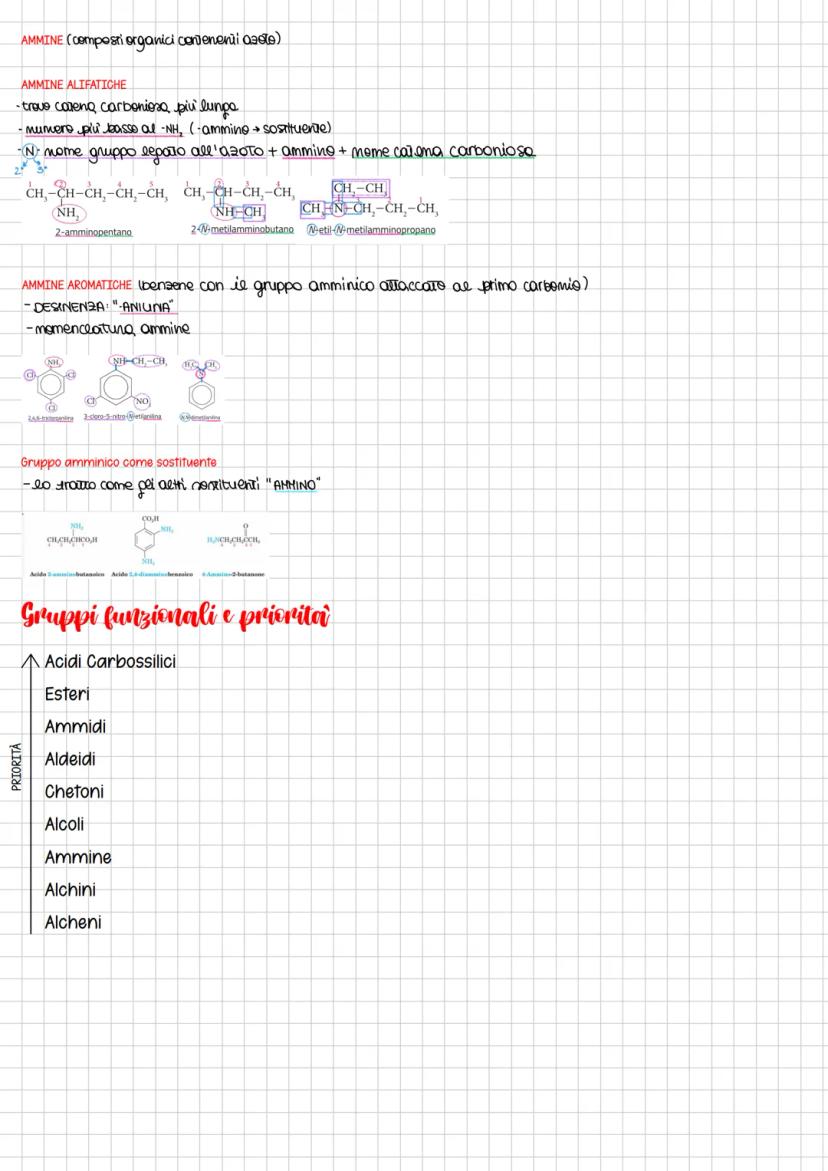 AMMINE (composti organici contenenti azoto)
AMMINE ALIFATICHE
- trovo catena carboniosa più lunga
- numero più basso al -NH₂ (-ammino → sostituente)
- N- nome gruppo legato all'azoto + ammino + nome catena carboniosa
2° 3°
1 2 3 4 5
CH₃-CH-CH₂-CH₂-CH₃
NH₂
2-amminopentano
1 2 3 4
CH₃-CH-CH₂-CH₃
NH-CH₃
2-N-metilamminobutano
CH₂-CH₃
CH₃-N-CH₂-CH₂-CH₃
N-etil-N-metilamminopropano
AMMINE AROMATICHE (benzene con il gruppo amminico attaccato al primo carbonio)
- DESINENZA: "-ANILINA"
- nomenclatura ammine
NH₂
Cl Cl
Cl
2,4,6-tricloroanilina
NH-CH₂-CH₃
Cl NO₂
3-cloro-5-nitro-N-etilanilina
H₃C CH₃
N
N,N-dimetilanilina
Gruppo amminico come sostituente
- lo tratto come gli altri sostituenti "AMMINO"
NH₂
CH₃CH₂CHCO₂H
4 3 2 1
Acido 2-amminobutanoico
CO₂H
NH₂
NH₂
Acido 2,4-diamminobenzoico
O
H₂NCH₂CH₂CCH₃
4 3 2 1
4-Ammino-2-butanone
Gruppi funzionali e priorità
PRIORITÀ
Acidi Carbossilici
Esteri
Ammidi
Aldeidi
Chetoni
Alcoli
Ammine
Alchini
Alcheni